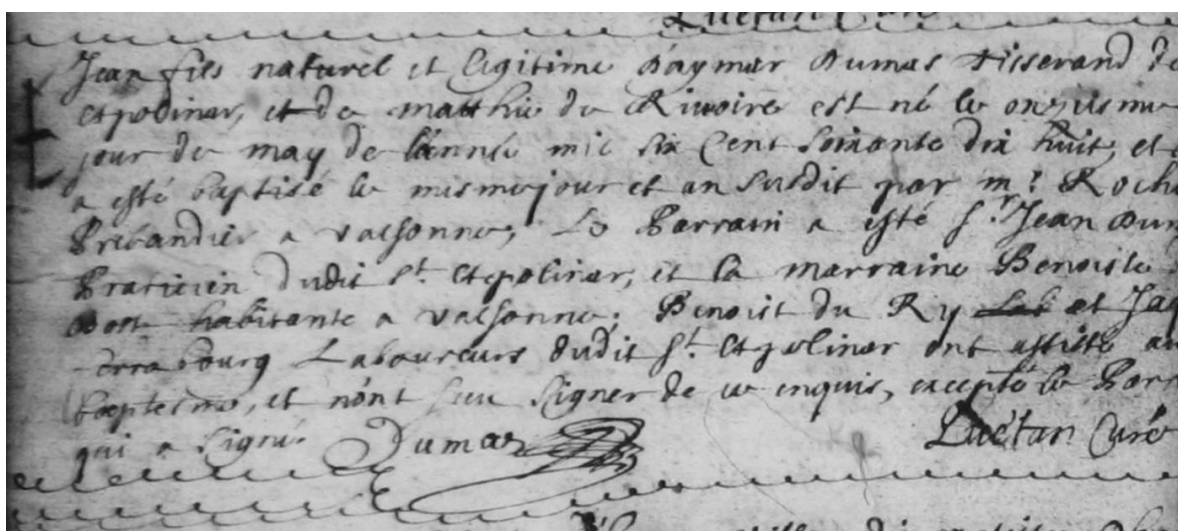 Luétan Curé
Jean fils naturel et legitime d'aymar Dumas Tisserand de
Appolinar, et de matthie de Rivoire est né le onziesme
jour de may de l'année mil six cent soixante dix huit, et
a esté baptisé le mesme jour et an susdit par mr Roche
Prebandier a valsonne, Le Parrain a esté sr Jean Dum
Praticien dudit st Appolinar, et la marraine Benoiste
habitante a valsonne. Benoist du Ry et Jaq
bourg Laboureurs dudit st Appolinar ont assisté au
baptesme, et n'ont sceu signer de ce enquis, excepté le Parr
qui a signé Dumas Luétan Curé